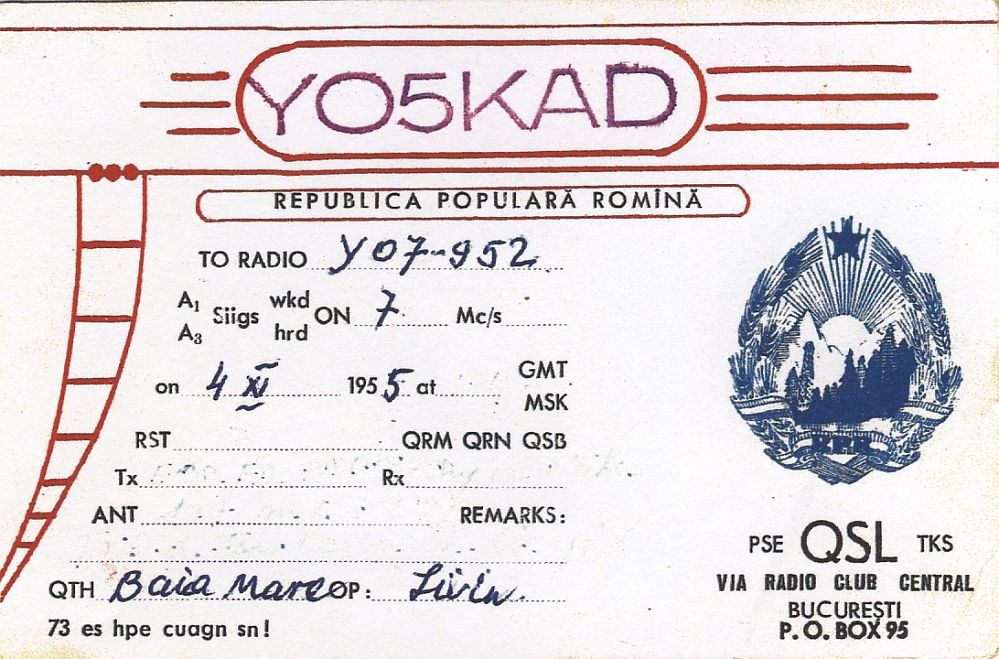 YO5KAD
REPUBLICA POPULARĂ ROMÎNĂ
TO RADIO YO7-952
A1 Siigs wkd ON 7 Mc/s
A3 hrd
on 4 XI 1955 at GMT
MSK
RST QRM QRN QSB
Tx Rx
ANT REMARKS:
QTH Baia Mare OP: Liviu
73 es hpe cuagn sn!
RPR
PSE QSL TKS
VIA RADIO CLUB CENTRAL
BUCUREȘTI
P.O. BOX 95